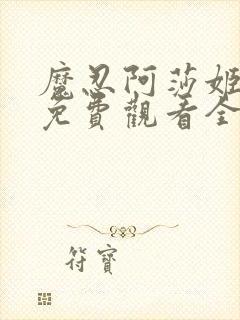 魔忍阿莎姬
免費觀看全
符寶